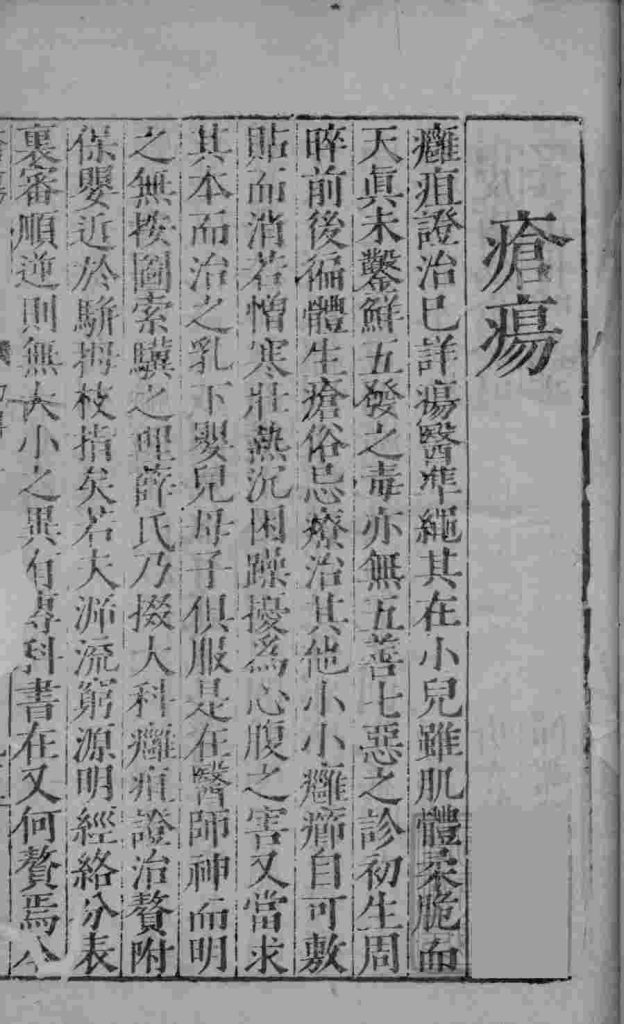 瘡瘍
癰疽證治已詳瘍醫準繩其在小兒雖肌體柔脆而
天眞未鑿鮮五發之毒亦無五善七惡之診初生周
晬前後徧體生瘡俗忌療治其他小小癰癤自可敷
貼而消若憎寒壯熱沉困躁擾爲心腹之害又當求
其本而治之乳下嬰兒母子俱服是在醫師神而明
之無按圖索驥之理薛氏乃掇大科癰疽證治贅附
保嬰近於駢拇枝指矣若夫泝流窮源明經絡分表
裏審順逆則無大小之異有專科書在又何贅焉今